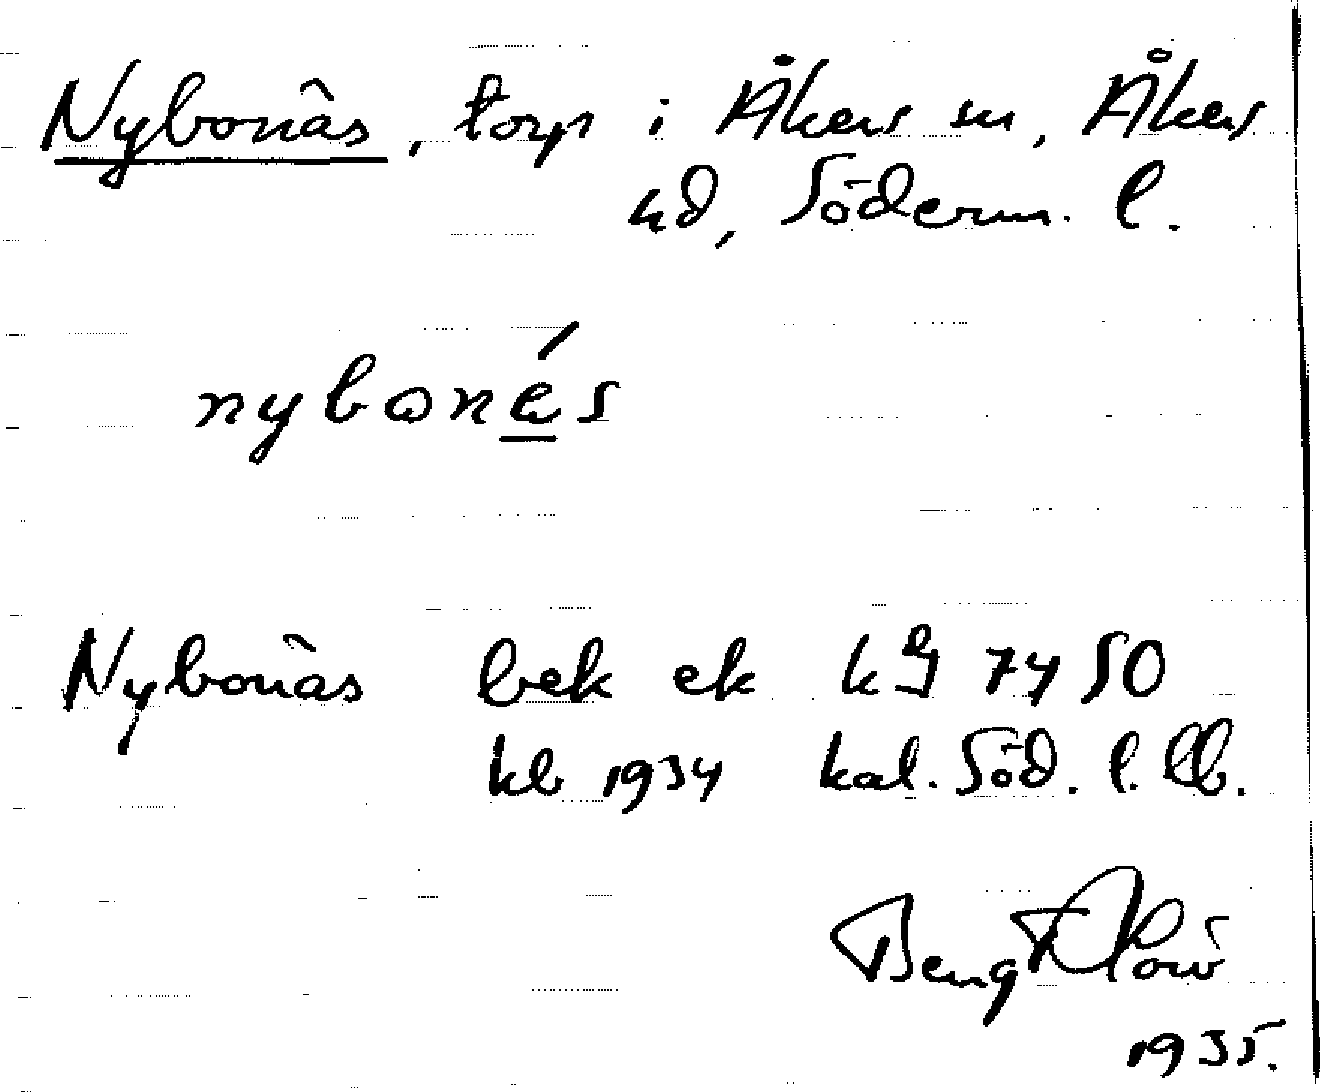 Nybonäs, torp i Åkers sn, Åkers
hd, Söderm. l.
nybonés
Nybonäs bek ek kg 74 50
kb 1934 kal. Söd. l. lb.
Bengt
1935.